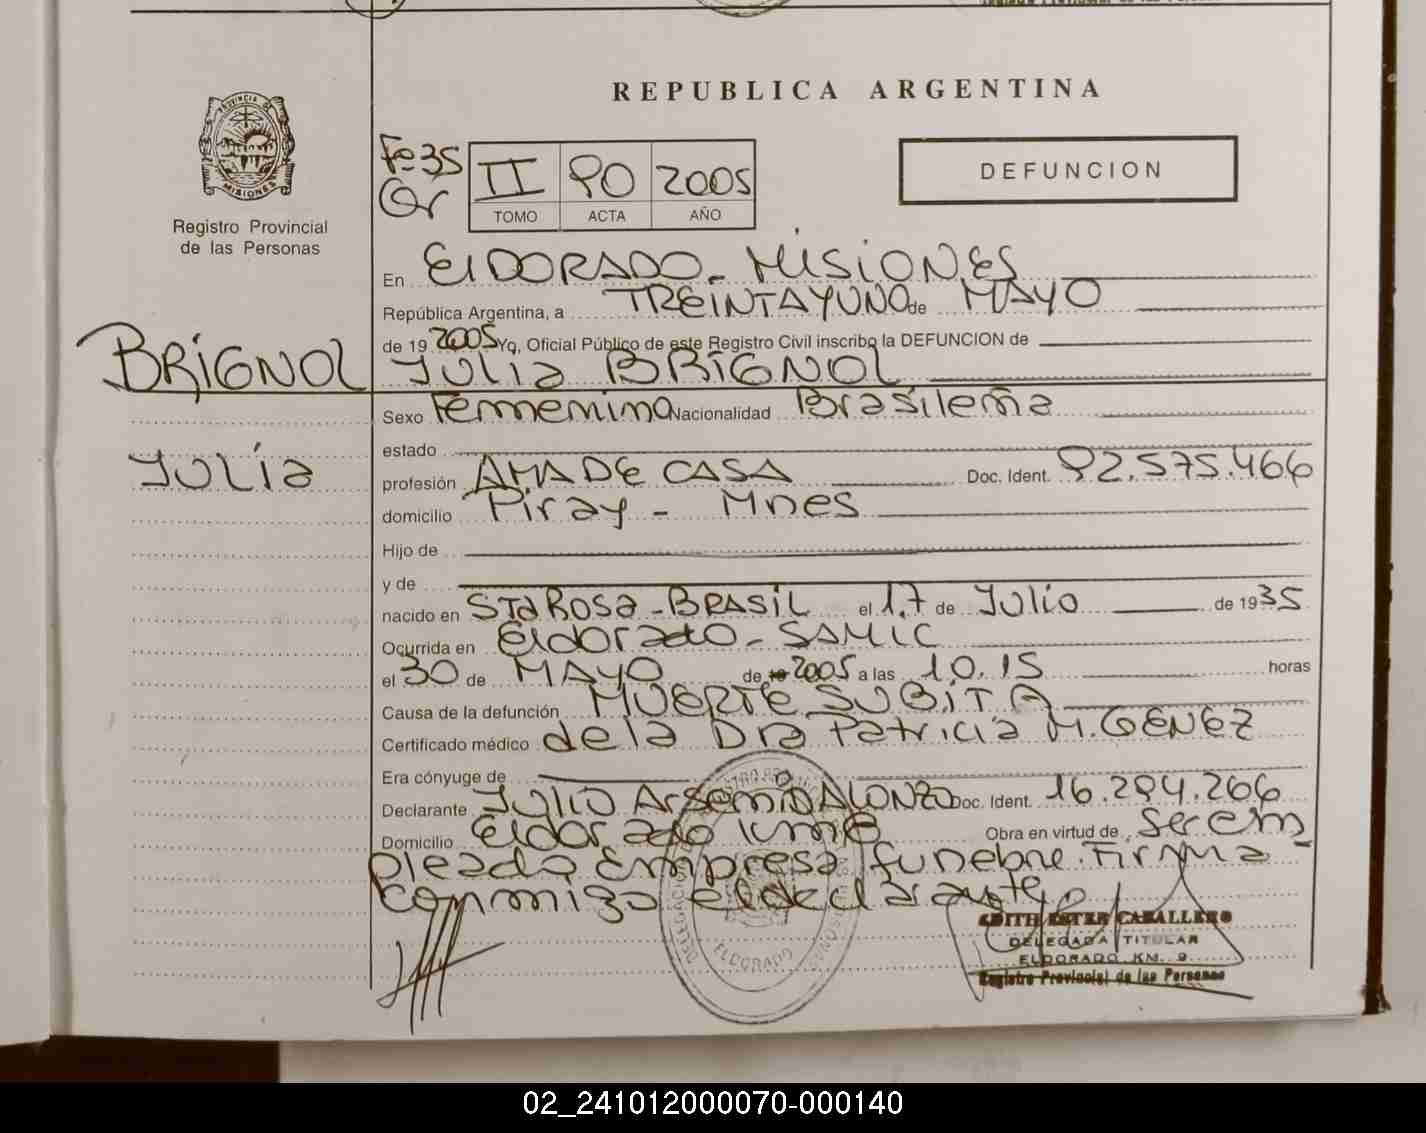 REPUBLICA ARGENTINA
PROVINCIA DE
MISIONES
Registro Provincial
de las Personas
Fe 35
II 90 2005
TOMO ACTA AÑO
DEFUNCION
En ElDORADO - MISIONES
República Argentina, a TREINTAYUNO de MAYO
de 19 2005 Yo, Oficial Público de este Registro Civil inscribo la DEFUNCION de
BRIGNOL
JULIA BRIGNOL
Sexo Femenino Nacionalidad Brasileña
estado
Julia
profesión AMA DE CASA Doc. Ident. 92.575.466
domicilio Piray - Mnes
Hijo de
y de
nacido en Sta Rosa - BRASIL el 17 de Julio de 1935
Ocurrida en Eldorado - SAMIC
el 30 de MAYO de 2005 a las 10.15 horas
Causa de la defunción MUERTE SUBITA
Certificado médico de la Dra Patricia M. GENEZ
Era cónyuge de
Declarante Julio Arsemio ALONZO Doc. Ident. 16.294.266
Domicilio Eldorado Obra en virtud de Ser em
pleado Empresa funebre. Firma
conmigo el declarante
EDITH ESTER CABALLERO
DELEGADA TITULAR
ELDORADO KM. 9
Registro Provincial de las Personas
ELDORADO
02_241012000070-000140